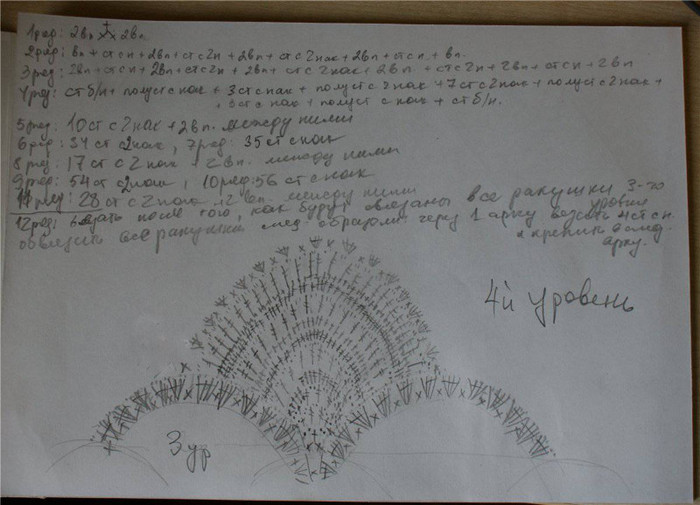 1ряд: 2вп 2вп
2ряд: вп + ст сн + 2вп + ст с2н + 2вп + ст с 2нак + 2вп + ст сн + вп.
3ряд: 2вп + ст сн + 2вп + ст с2н + 2вп + ст с 2нак + 2вп + ст с2н + 2вп + ст сн + 2вп
4ряд: ст б/н + полуст с нак + 3 ст с нак + полуст с 2нак + 7 ст с 2нак + полуст с 2нак +
+ 3 ст с нак + полуст с нак + ст б/н.
5ряд: 10 ст с 2 нак + 2вп. между ними
6ряд: 34 ст с2нак, 7ряд: 35 ст с нак
8ряд: 17 ст с 2 нак + 2вп. между ними
9ряд: 54 ст с2нак, 10ряд: 56 ст с нак
11ряд: 28 ст с 2нак + 2 вп между ними
12ряд: вязать после того, как будут связаны все ракушки 3-го уровня
обвязать все ракушки след. образом: через 1 арку вязать 4 ст сн
и крепить в след. арку.
4й уровень
3 ур